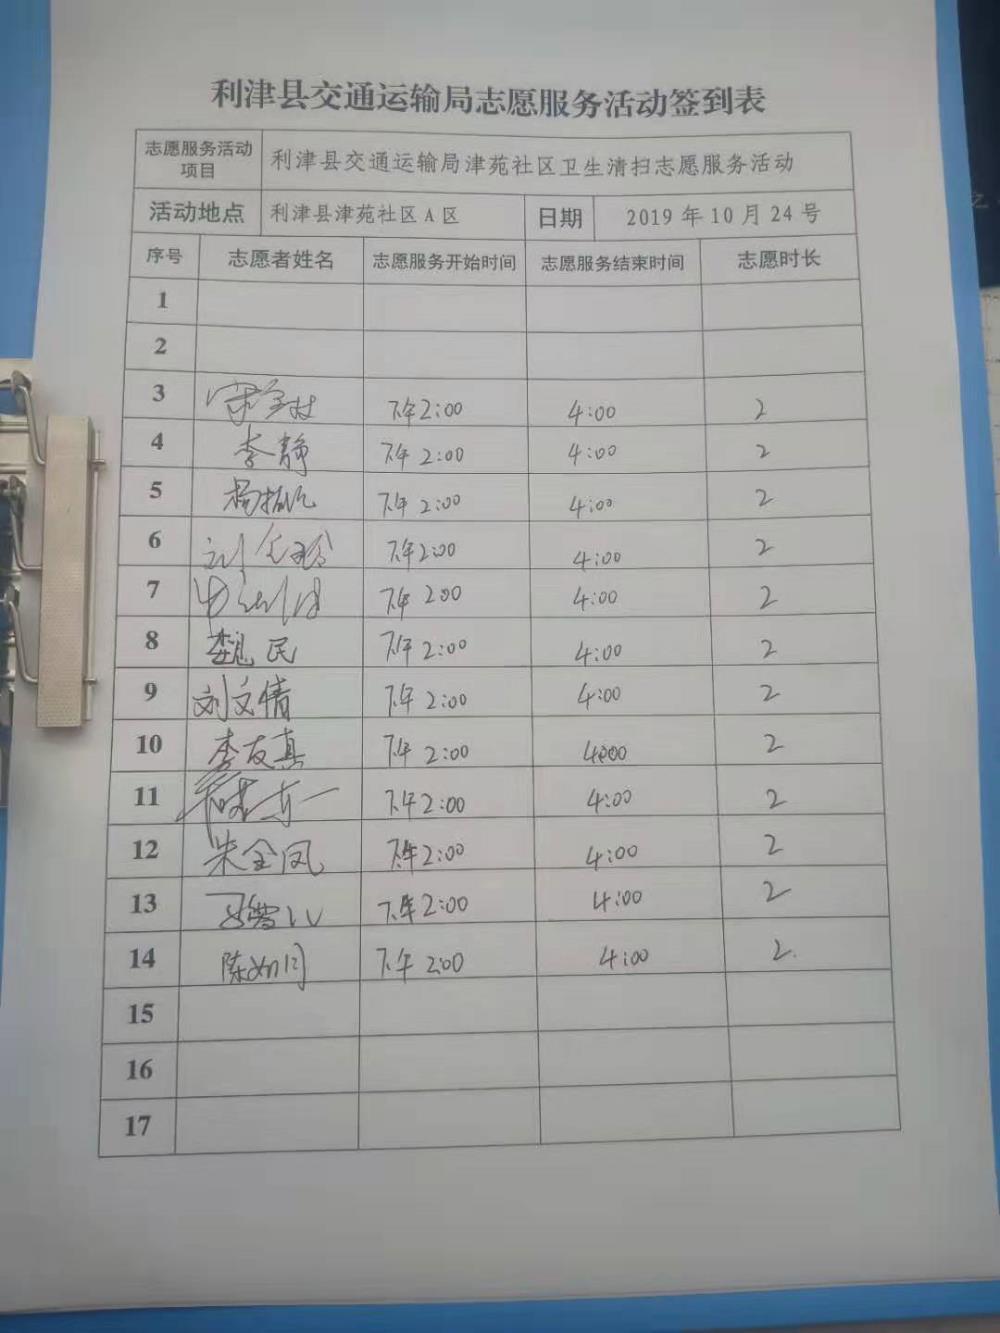 利津县交通运输局志愿服务活动签到表
志愿服务活动项目 利津县交通运输局津苑社区卫生清扫志愿服务活动
活动地点 利津县津苑社区A区 日期 2019年10月24号
序号 志愿者姓名 志愿服务开始时间 志愿服务结束时间 志愿时长
1
2
3 下午2:00 4:00 2
4 李静 下午2:00 4:00 2
5 下午2:00 4:00 2
6 下午2:00 4:00 2
7 下午200 4:00 2
8 魏民 下午2:00 4:00 2
9 刘文倩 下午2:00 4:00 2
10 李友真 下午2:00 4:00 2
11 下午2:00 4:00 2
12 朱全凤 下午2:00 4:00 2
13 下午2:00 4:00 2
14 陈如月 下午2:00 4:00 2.
15
16
17